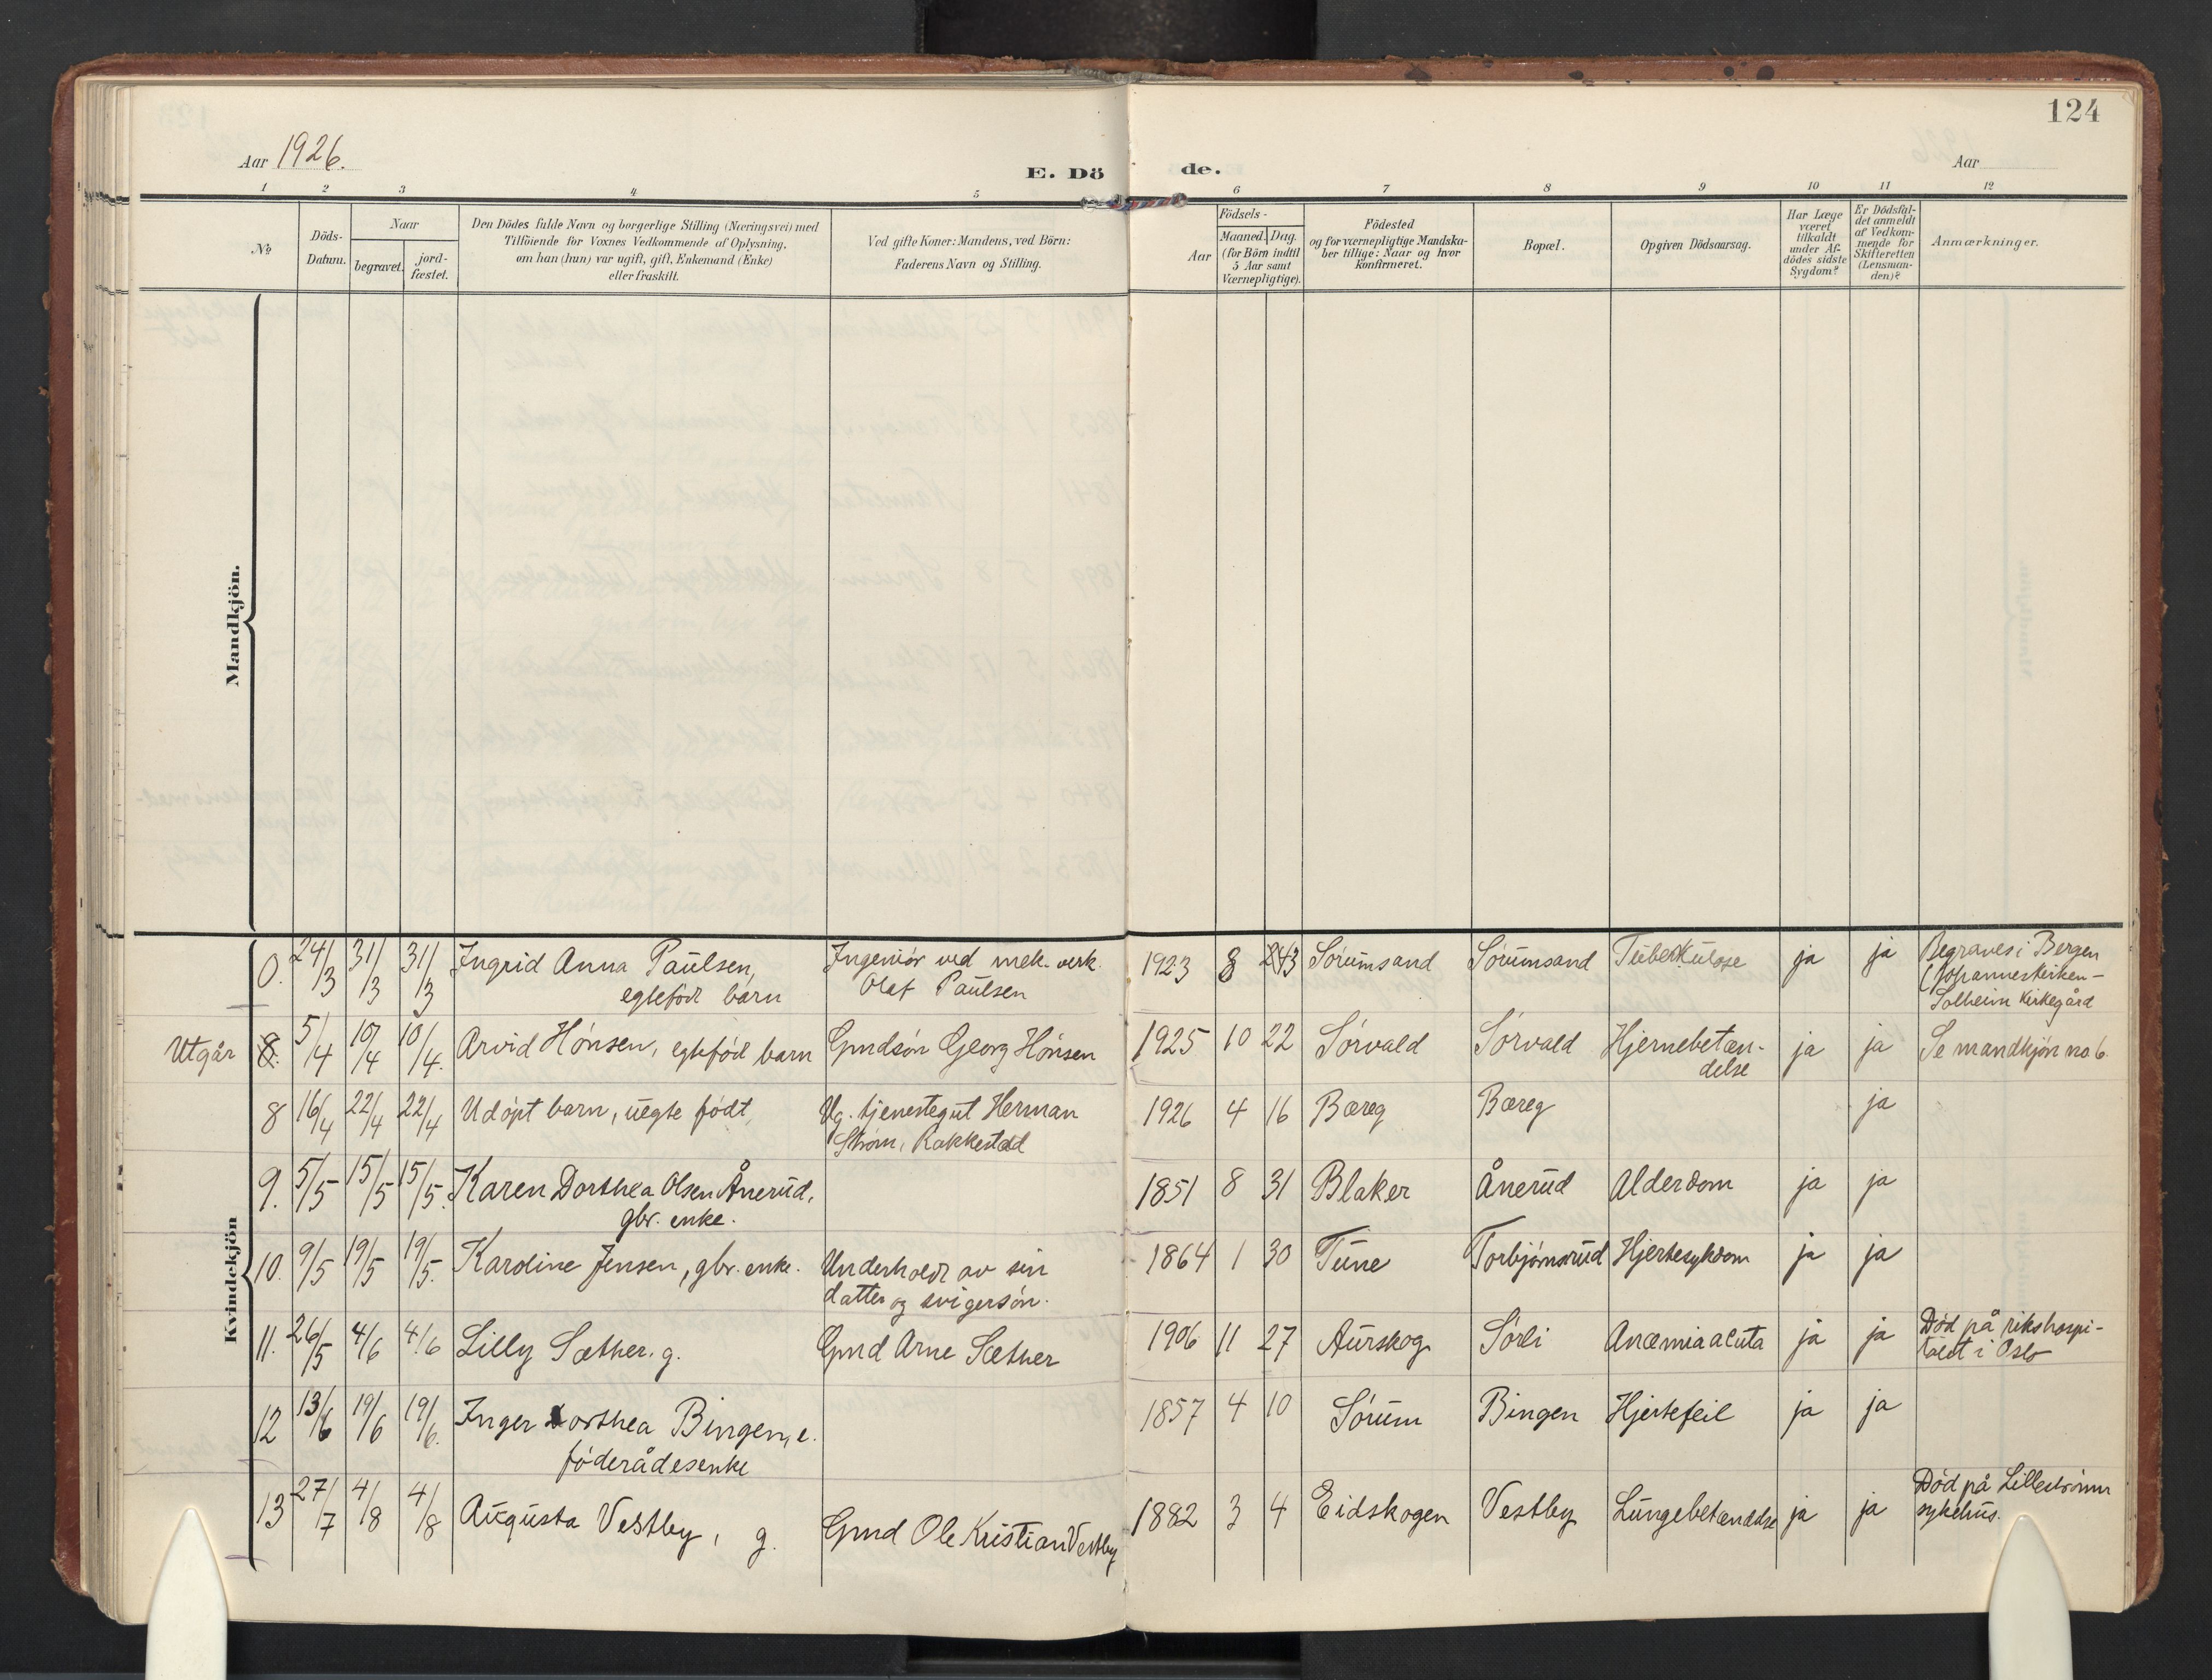 124
Aar 1926.
E. Dö
de.
Aar
1 2 3 4 5 6 7 8 9 10 11 12
No
Döds-
Datum.
Naar
begravet.
jord-
fæstet.
Den Dödes fulde Navn og borgerlige Stilling (Næringsvei) med
Tilföiende for Voxnes Vedkommende af Oplysning,
om han (hun) var ugift, gift, Enkemand (Enke)
eller fraskilt.
Ved gifte Koner: Mandens, ved Börn:
Faderens Navn og Stilling.
Födsels-
Aar
Maaned. Dag.
(for Börn indtil
5 Aar samt
Værnepligtige).
Födested
og for værnepligtige Mandska-
ber tillige: Naar og hvor
Konfirmeret.
Bopæl.
Opgiven Dödsaarsag.
Har Læge
været
tilkaldt
under Af-
dödes sidste
Sygdom?
Er Dödsfal-
det anmeldt
af Vedkom-
mende for
Skifteretten
(Lensman-
den)?
Anmærkninger.
Mandkjön.
Kvindekjön
0. 24/3 31/3 31/3 Ingrid Anna Paulsen, Ingeniør ved mek. verk. 1923 8 3 Sørumsand Sørumsand Tuberkulose ja ja Begraves i Bergen
egtefød barn Olaf Paulsen (Johanneskirken-
Solheim kirkegård
Utgår 8. 5/4 10/4 10/4. Arvid Hønsen, egtefød barn Grndsøn Georg Hønsen 1925 10 22 Sørvald Sørvald Hjernebetæn- ja ja Se mandkjøn no 6.
delse
8 16/4 22/4 22/4 Udøpt barn, uegte født, Ug. tjenestegut Herman 1926 4 16 Bæreg Bæreg ja
Strøm, Rakkestad
9. 5/5 15/5 15/5. Karen Dorthea Olsen Ånerud, 1851 8 31 Blaker Ånerud Alderdom ja ja
gbr. enke.
10. 9/5 19/5 19/5. Karoline Jensen, gbr. enke. Underholdt av sin 1864 1 30 Tune Torbjørnsrud Hjertesykdom ja ja
datter og svigersøn.
11. 26/5 4/6 4/6 Lilly Sæther. g. Grnd Arne Sæther 1906 11 27 Aurskog Sørli Anæmia acuta ja ja Død på rikshospi-
talet i Oslo
12 13/6 19/6 19/6. Inger Dorthea Bingen, e. 1857 4 10 Sørum Bingen Hjertefeil ja ja
føderådesenke
13 27/7 4/8 4/8 Augusta Vestby, g. Grnd Ole Kristian Vestby 1882 3 4 Eidskogen Vestby Lungebetændelse ja ja Død på Lillestrømm
sykehus.